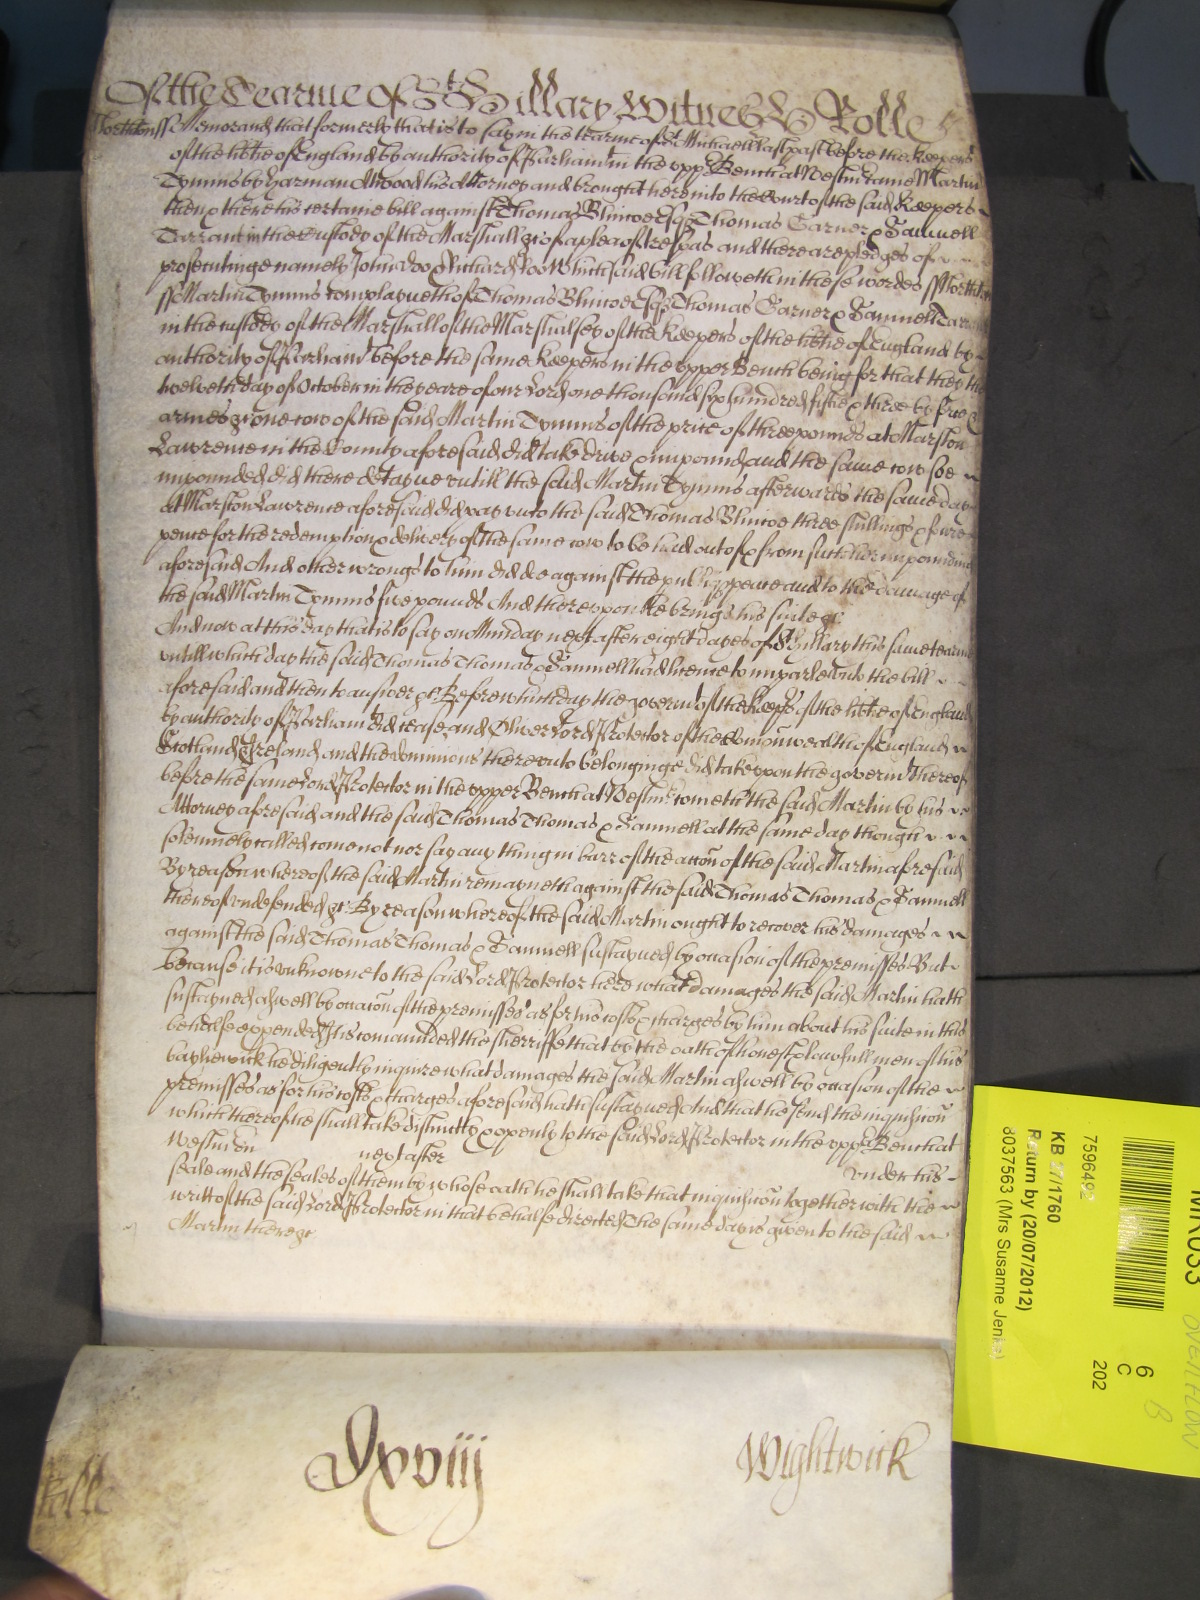 Of the Tearme Of St Hillary Witnes H Rolle
Northtonss Memorand that formerly that is to say in the tearme of st Michaell last past before the Keepers
of the libtie of England by authority of Parliamt in the upp Bench at Westmr came Martin
Tymms by Harman Atwood his Attorney and brought here into the Court of the said Keepers
then & there his certaine bill against Thomas Blincoe Esqr Thomas Garner & Samuell
Tarrant in the Custody of the Marshall &c of a plea of trespas and there are pledges of
prosecutinge namely John Doo & Richard Roo Which said bill followeth in these wordes ss Northton
ss Martin Tymms complayneth of Thomas Blincoe Esqr Thomas Garner & Samuell Tarrant
in the custody of the Marshall of the Marshalsey of the Keepers of the libtie of England by
authority of Parliamt before the same Keepers in the upper Bench being for that they the
twelveth day of October in the yeare of our Lord one thousand six hundred fiftie & three by force &
armes &c one cow of the said Martin Tymms of the price of three pounds at Marston
Lawrence in the County aforesaid did take drive & impound and the same cow soe
impounded did there detayne untill the said Martin Tymms afterwards the same day
at Marston Lawrence aforesaid did pay unto the said Thomas Blincoe three shillings &
pence for the redemption & delivery of the same cow to be had out of & from such her impounding
aforesaid And other wrongs to him did do against the publiq peace and to the damage of
the said Martin Tymms five pounds And thereuppon he brings his suite &c
And now at this day that is to say on Munday next after eight dayes of St Hillary this same tearme
untill which day the said Thomas Thomas & Samuell had licence to imparle unto the bill
aforesaid and then to answer &c Before which day the govermt of the Keeps of the libtie of England
by authority of Parliamt did cease, and Oliver Lord Protector of the Comonwealth of England
Scotland & Ireland and the dominions thereunto belonginge did take upon the govermt thereof
before the same Lord Protector in the upper Bench at Westmr cometh the said Martin by his
Attorney aforesaid and the said Thomas Thomas & Samuell at the same day though
solemnely called come not nor say any thing in barr of the accon of the said Martin aforesaid
By reason whereof the said Martin remayneth against the said Thomas Thomas & Samuell
thereof undefended &c By reason whereof the said Martin ought to recover his damages
against the said Thomas Thomas & Samuell sustayned by occasion of the premisses But
because it is unknowne to the said Lord Protector here what damages the said Martin hath
sustayned aswell by occacon of the premisses as for his costs & charges by him about his suite in this
behalfe expended It is comaunded the sherriffe that by the oath of honest & lawfull men of his
baylewick he diligently inquire what damages the said Martin aswell by occasion of the
premisses as for his costs & charges aforesaid hath sustayned And that he send the inquisicon
which thereof he shall take distinctly & openly to the said Lord Protector in the upp Bench at
Westm on next after under his
seale and the seales of them by whose oath he shall take that inquisicon together with the
writt of the said Lord Protector in that behalfe directed The same day is given to the said
Martin there &c
Rolle
Dxviij
Wightwick
7596492
KB 27/1760
Return by (20/07/2012)
8037563 (Mrs Susanne Jenks)
6
C
202
MR033
OVERFLOW
B